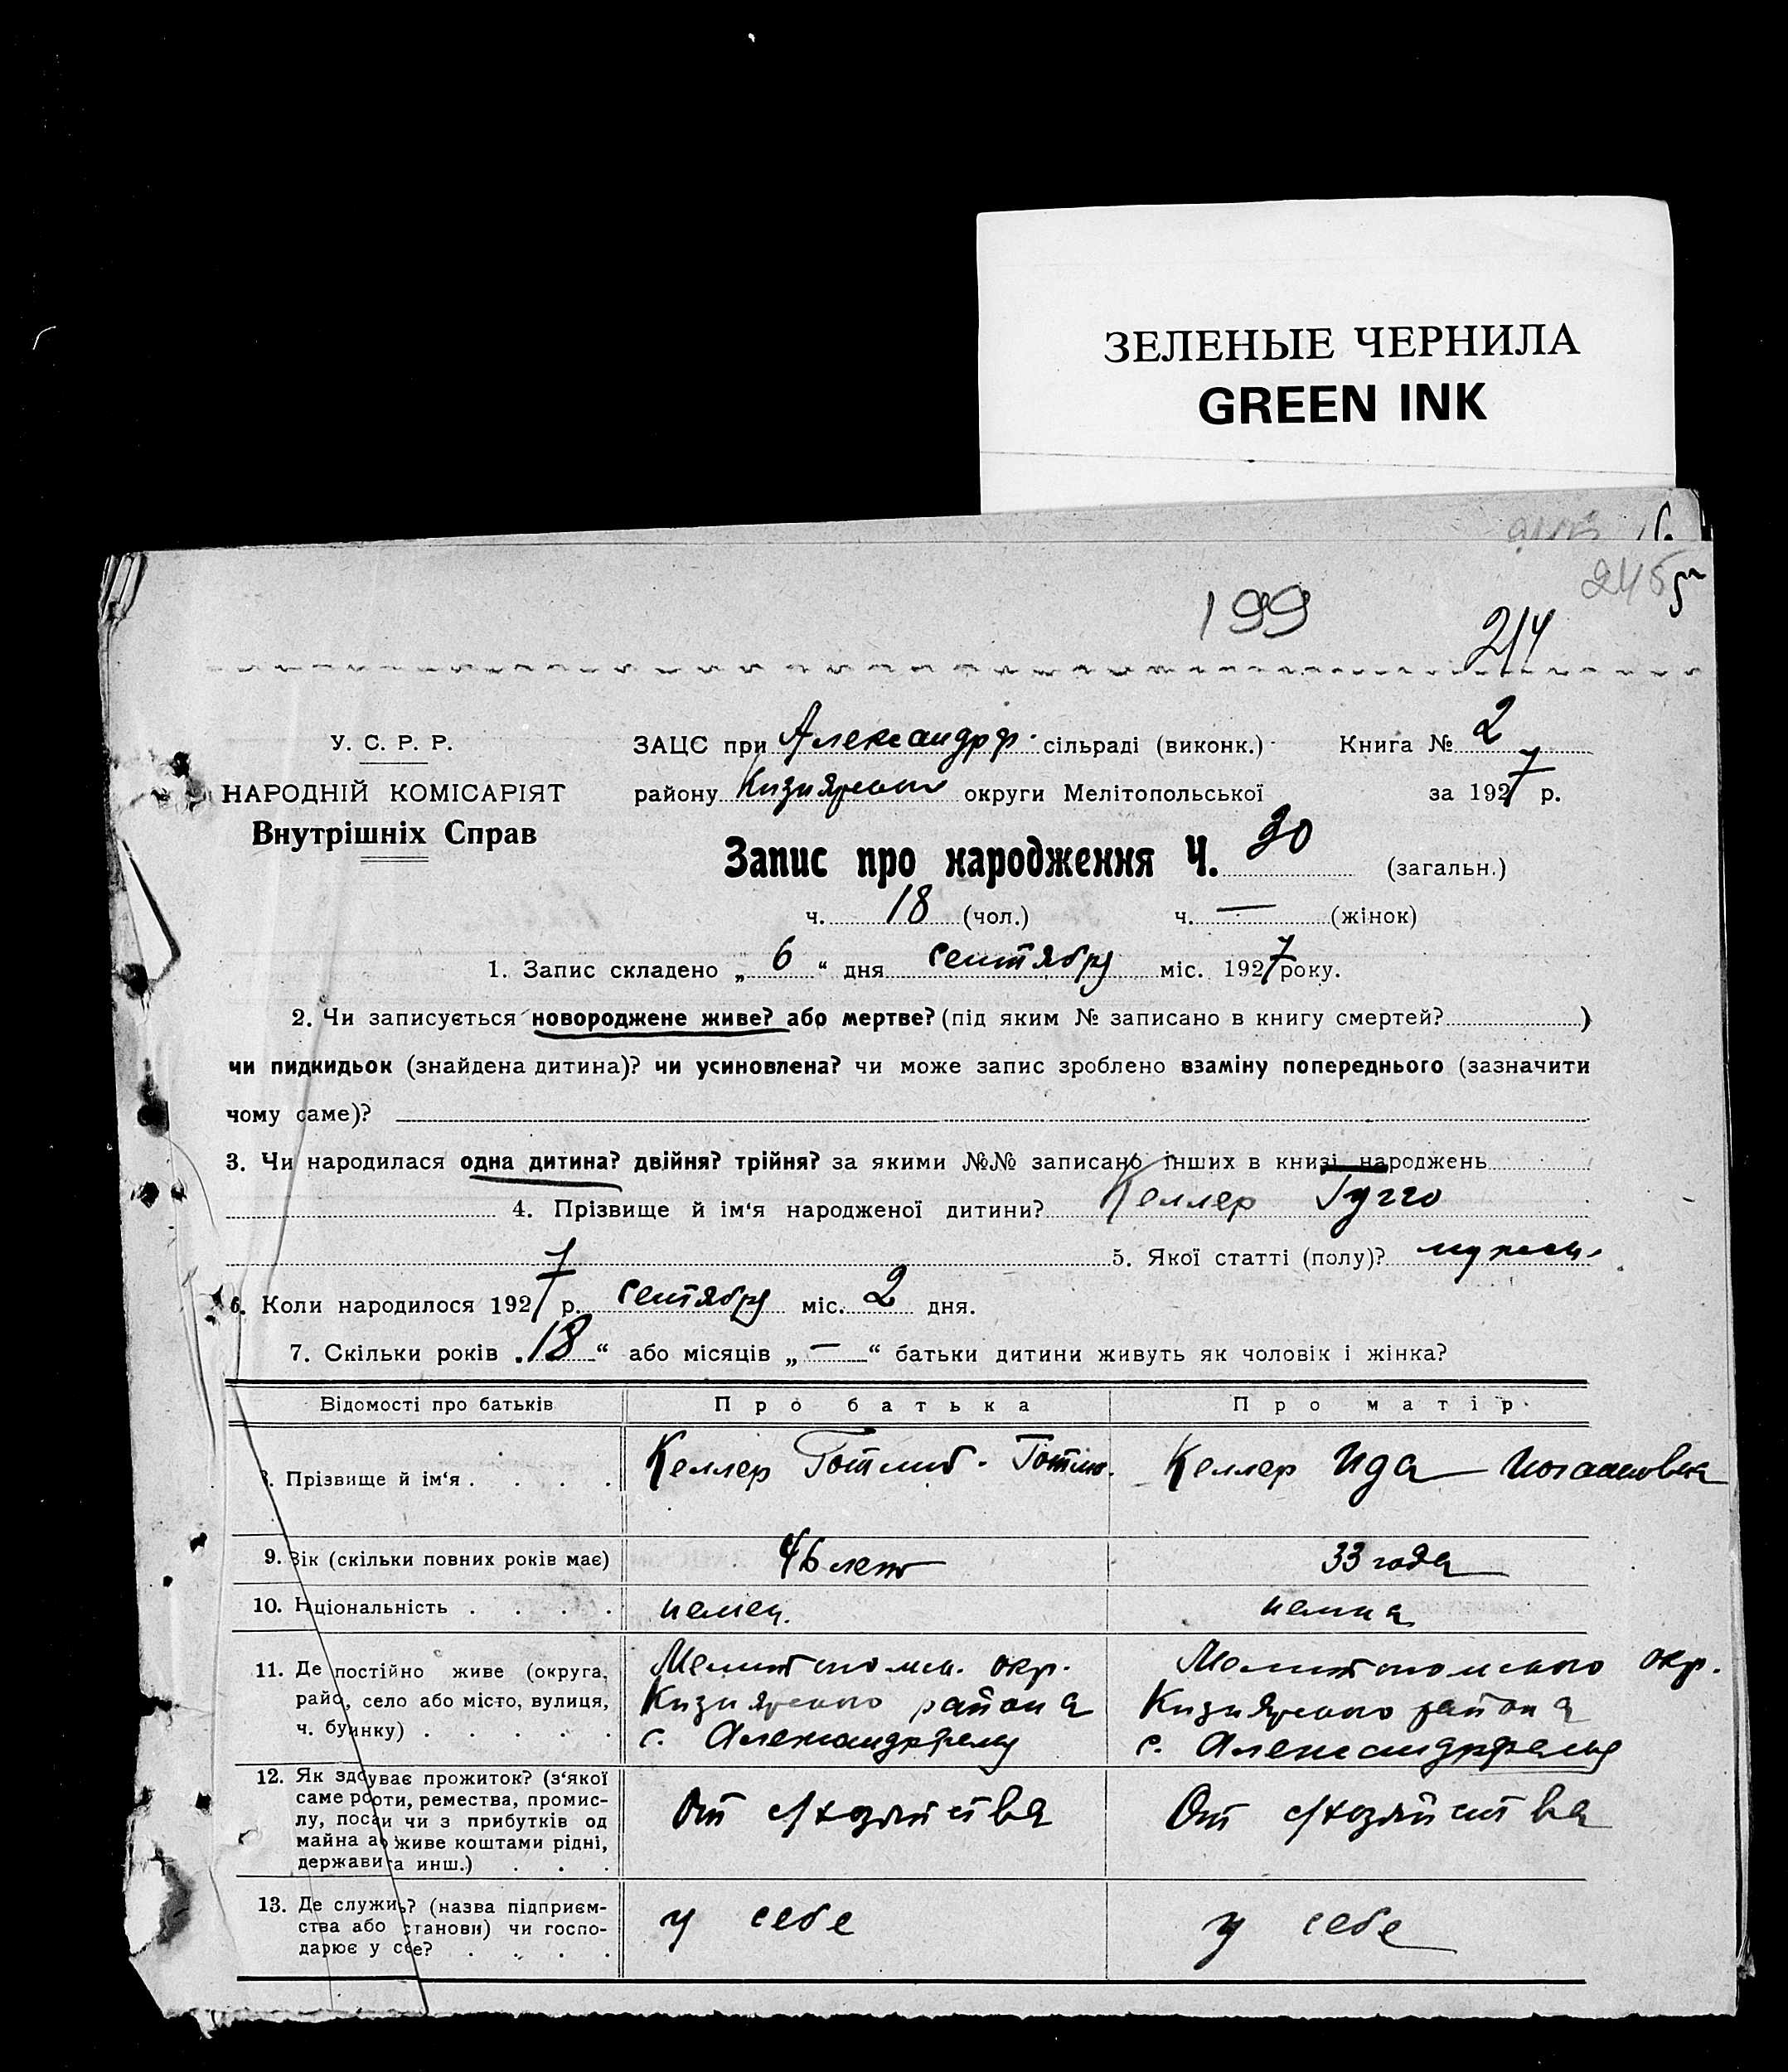 ЗЕЛЕНЫЕ ЧЕРНИЛА
GREEN INK
199
214
У. С. Р. Р.
НАРОДНІЙ КОМІСАРІЯТ
Внутрішніх Справ
ЗАЦС при Александрф. сільраді (виконк.) Книга № 2
району Кизиярского округи Мелітопольської за 1927 р.
Запис про народження Ч. 30 (загальн.)
ч. 18 (чол.) ч. — (жінок)
1. Запис складено „ 6 “ дня сентября міс. 1927 року.
2. Чи записується новороджене живе? або мертве? (під яким № записано в книгу смертей? )
чи пидкидьок (знайдена дитина)? чи усиновлена? чи може запис зроблено взаміну попереднього (зазначити
чому саме)?
3. Чи народилася одна дитина? двійня? трійня? за якими №№ записано інших в книзі народжень
4. Прізвище й ім‘я народженої дитини? Келлер Гугго
5. Якої статті (полу)? мужск.
6. Коли народилося 1927 р. сентября міс. 2 дня.
7. Скільки років „ 18 “ або місяців „ — “ батьки дитини живуть як чоловік і жінка?
Відомості про батьків Про батька Про матір
8. Прізвище й ім‘я . . . . Келлер Готлиб. Готлиб. Келлер Ида Иогановна
9. Вік (скільки повних років має) 46 лет 33 года
10. Національність . . . . немец. немка
11. Де постійно живе (округа, район, село або місто, вулиця, ч. будинку) . . . . .
Мелитопольск. окр.
Кизиярского района
с. Александрфельд
Мелитопольского окр.
Кизиярского района
с. Александрфельд
12. Як здобуває прожиток? (з‘якої
саме роботи, ремества, промис-
лу, посади чи з прибутків од
майна або живе коштами рідні,
держави та инш.) . . .
От с/хозяйства От с/хозяйства
13. Де служить? (назва підприєм-
ства або установи) чи госпо-
дарює у себе? . . . .
у себе у себе